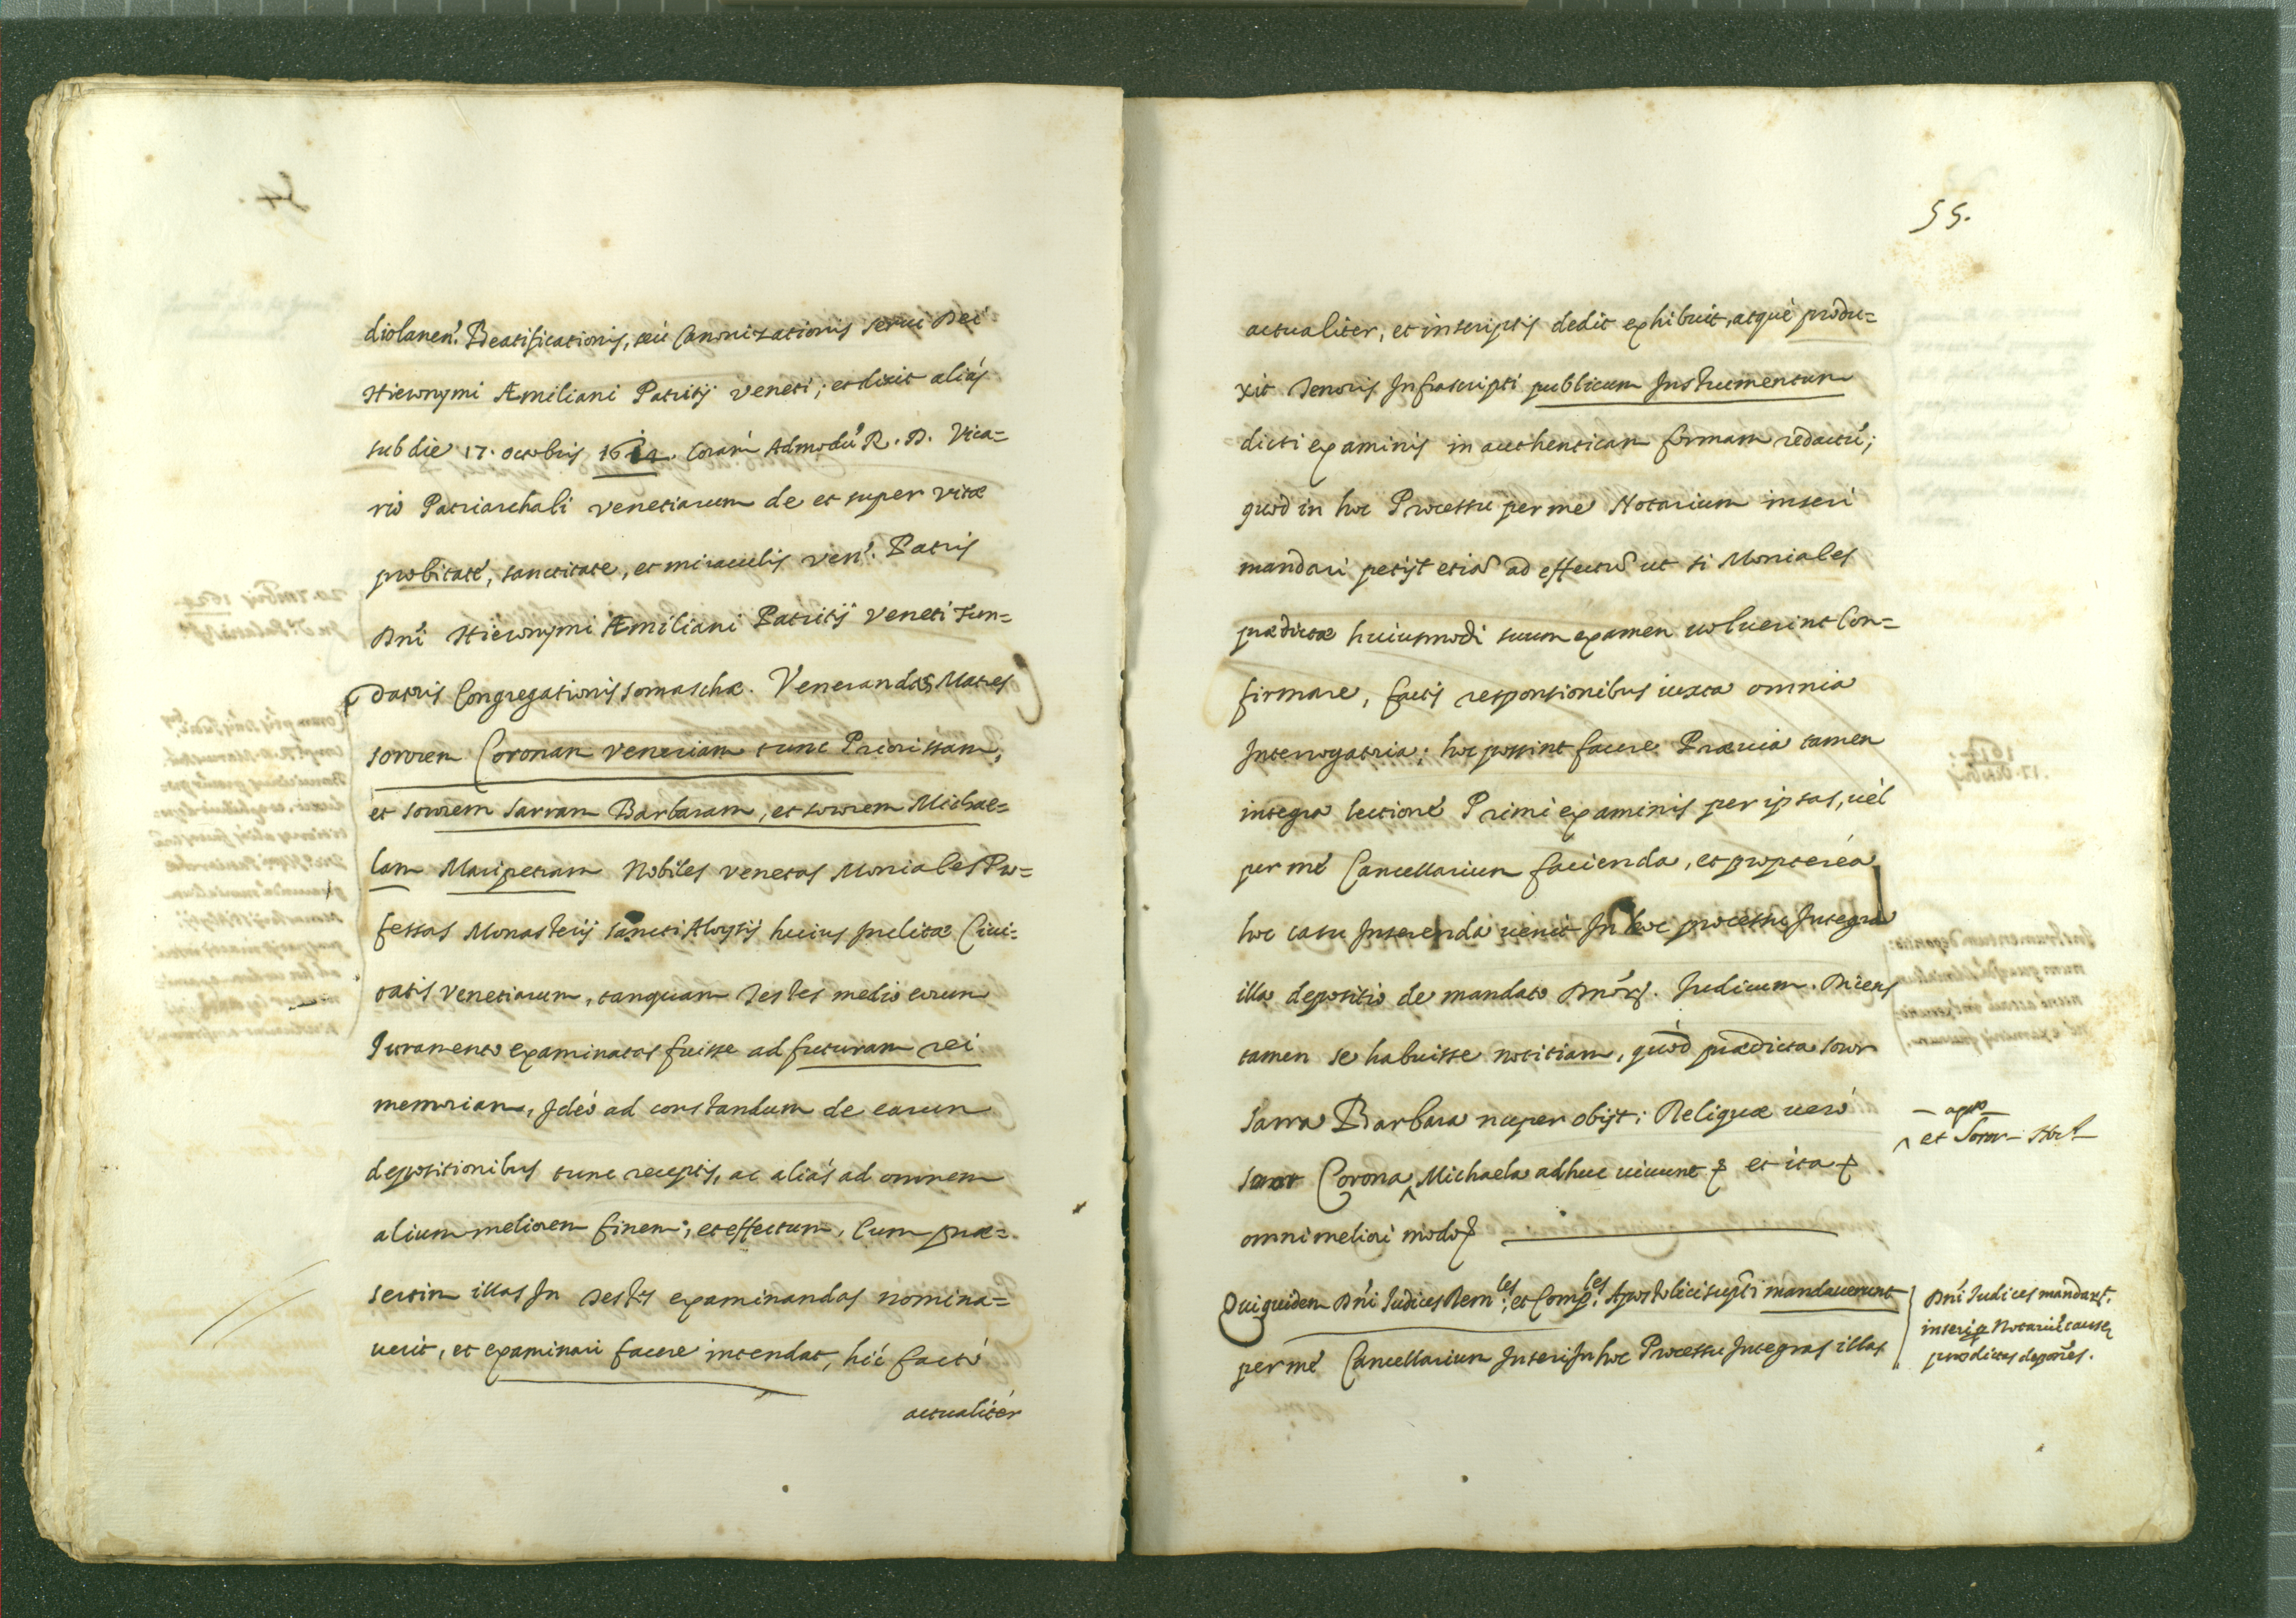 diolanen. Beatificationis, seù Canonizationis serui Dei
Hieronymi Æmiliani Patritij Veneti; et dixit aliàs
sub die 17. octobris 1614. Coràm Admodũ R. D. Vica=
rio Patriarchali Venetiarum de et super vitæ
probitate, sanctitate, et miraculis Ven. Patris
Dñi Hieronymi Æmiliani Patritij Veneti Fun=
datoris Congregationis somaschæ. Venerandas Matres
sororem Coronam Veneriam tunc Priorissam,
et sororem Sarram Barbaram, et sororem Michae=
lam Maripetram Nobiles Venetas Moniales Pro=
fessas Monasterij sancti Aloysij huius inclitæ Ciui=
tatis Venetiarum, tanquam Testes medio earum
Iuramento examinatas fuisse ad futuram rei
memoriam, Ideò ad constandum de earum
depositionibus tunc receptis, ac aliàs ad omnem
alium meliorem finem, et effectum, Cum præ=
sertim illas In Testes examinandas nomina=
uerit, et examinari facere intendat, hìc factò
actualitèr
55.
actualiter, et inscriptis dedit exhibuit, atquè produ=
xit Tenoris Infrascripti publicum Instrumentum
dicti examinis in authenticam formam redactũ;
quod in hoc Processu per me Notarium inseri
mandari petijt etiã ad effectũ ut si Moniales
prædictæ huiusmodi suum examen uoluerint Con=
firmare, factis responsionibus iuxta omnia
Interrogatoria; hoc possint facere Præuia tamen
integra lectione Primi examinis per ipsas, uèl
per mè Cancellarium facienda, et proptereà
hoc casu Inserenda uenit In hoc processu Integra
illa depositio de mandato Dñorũ. Iudicum. Dicens
tamen se habuisse notitiam, quòd prædicta soror
Sarra Barbara nuper obijt; Reliquæ uerò
soror Corona ^ Michaela adhuc uiuunt et ita
^ et Soror
omni meliori modo
Qui quidem Dñi Iudices Rem:les et Comp:les Apostolici supti mandauerunt
per mè Cancellarium Inseri In hoc Processu Integras illas
Dñi Iudices mandant,
inseri p Notariũ causæ
prædictas depoñes.